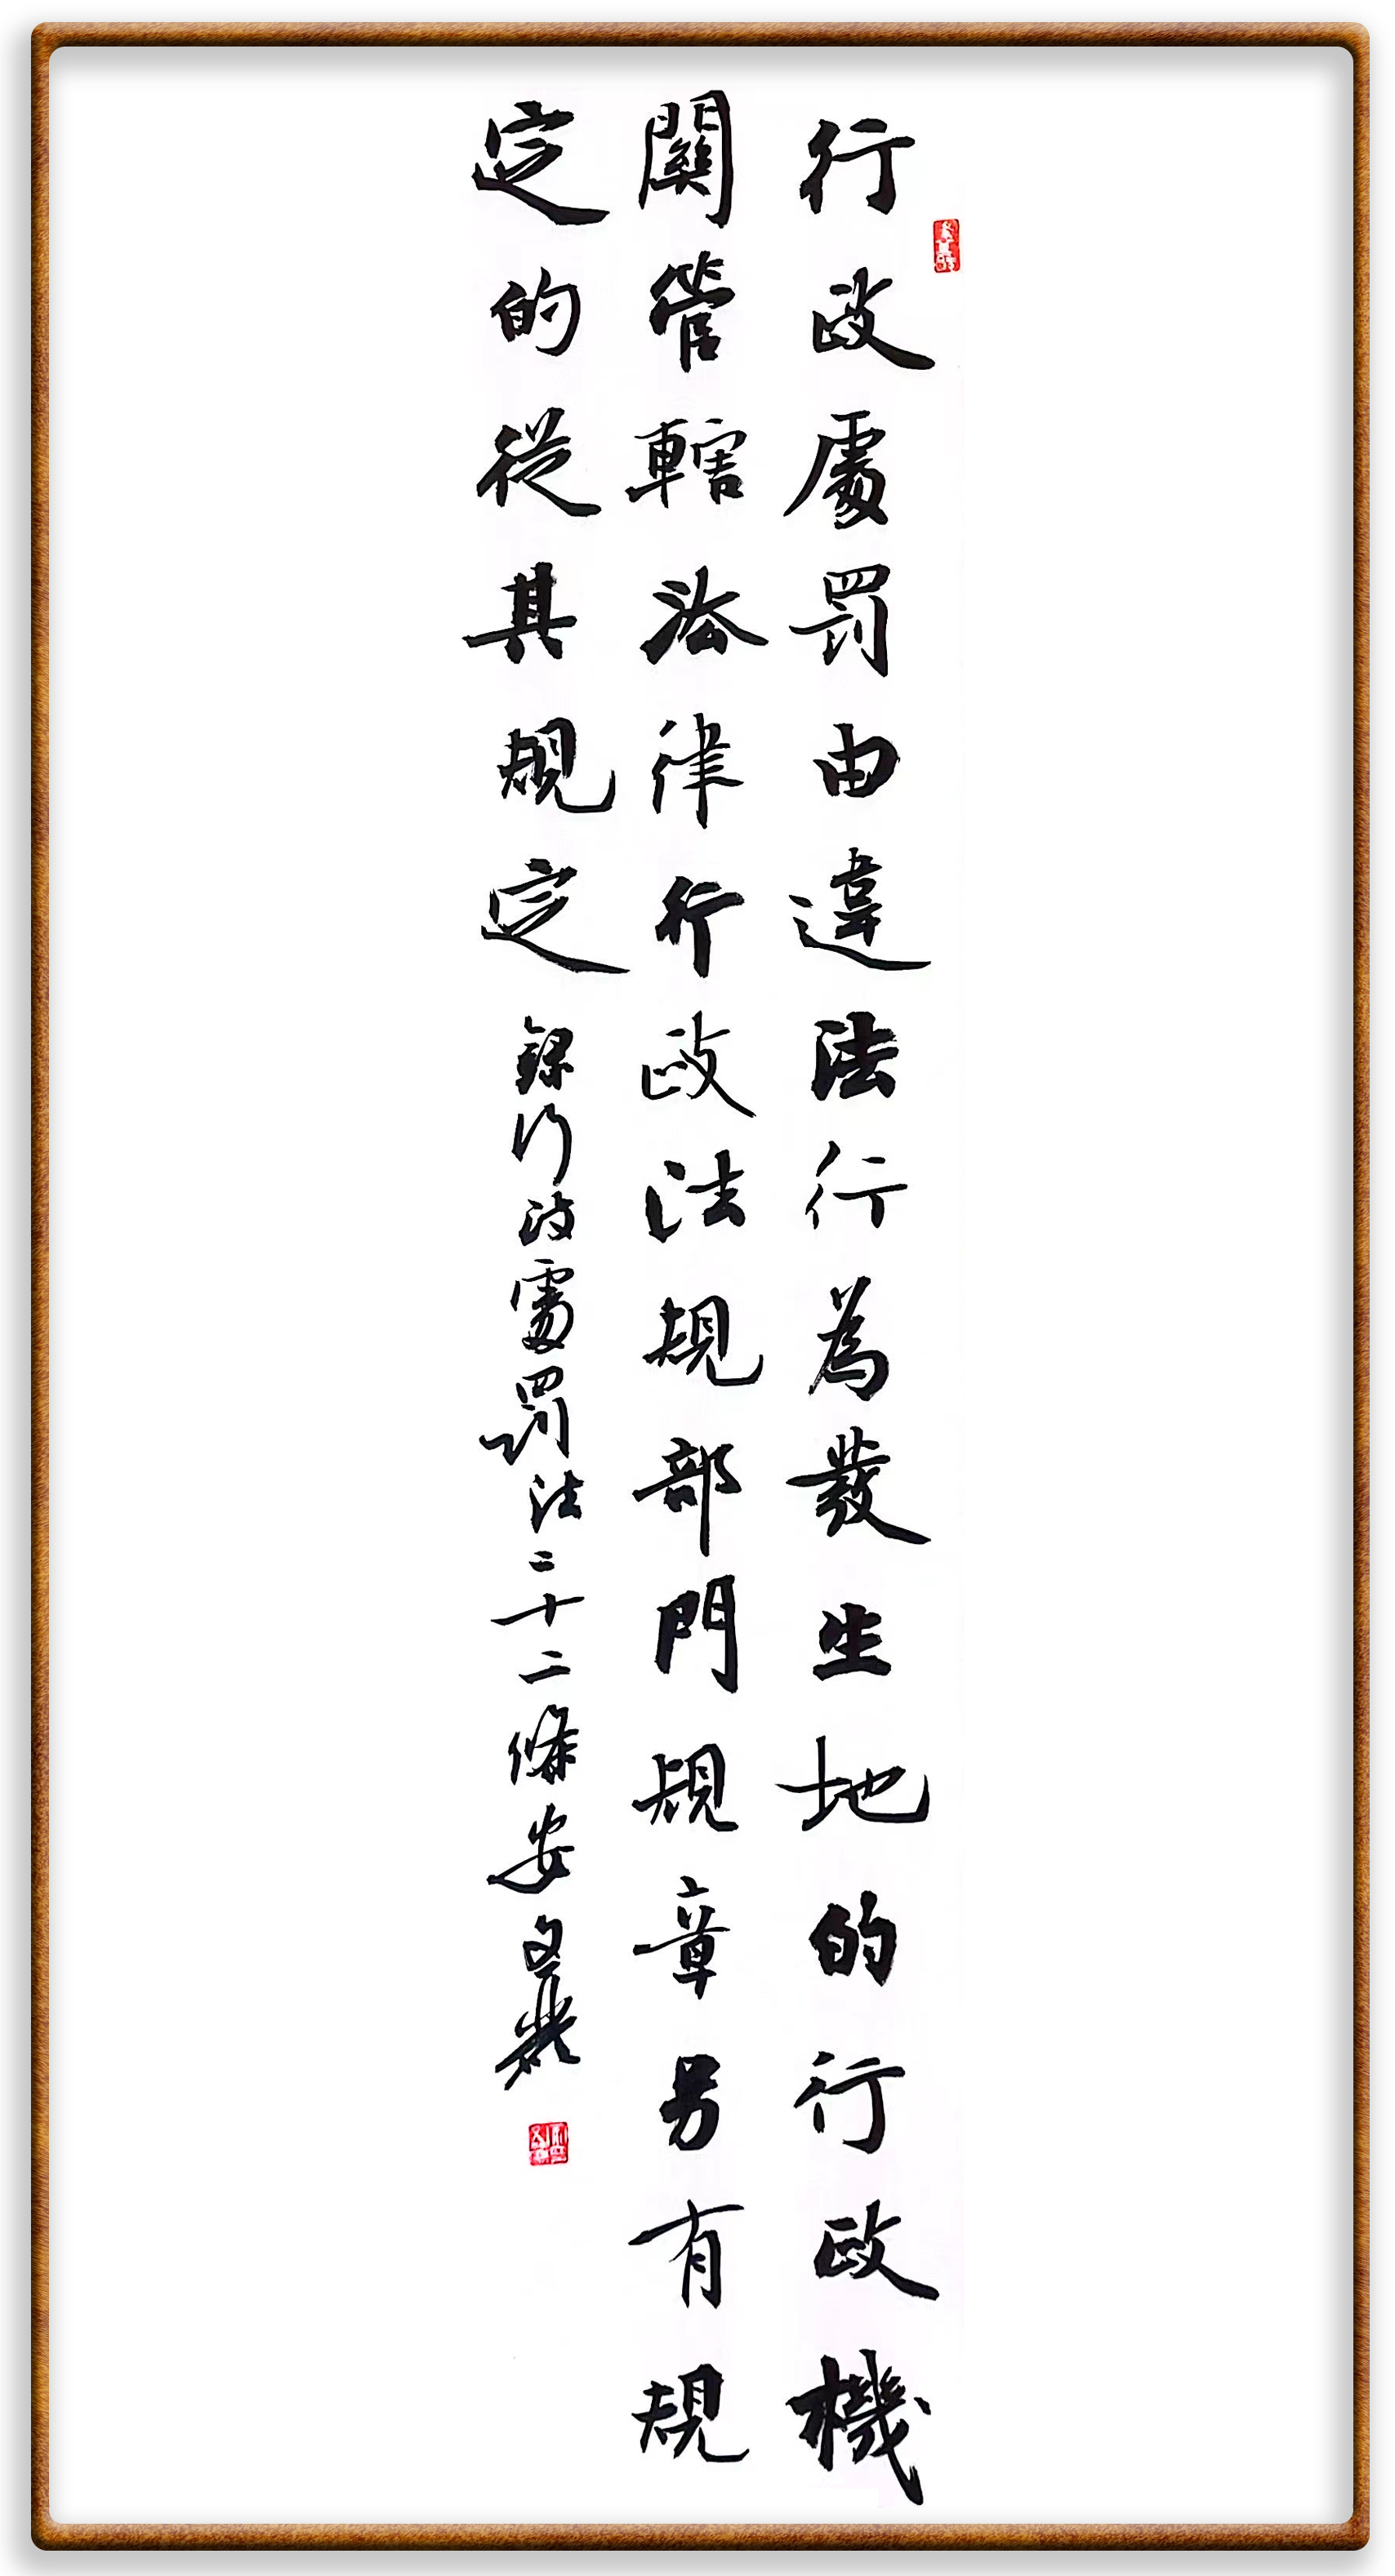 行政處罰由違法行為發生地的行政機
關管轄法律行政法規部門規章另有規
定的從其規定 錄行政處罰法二十二條安